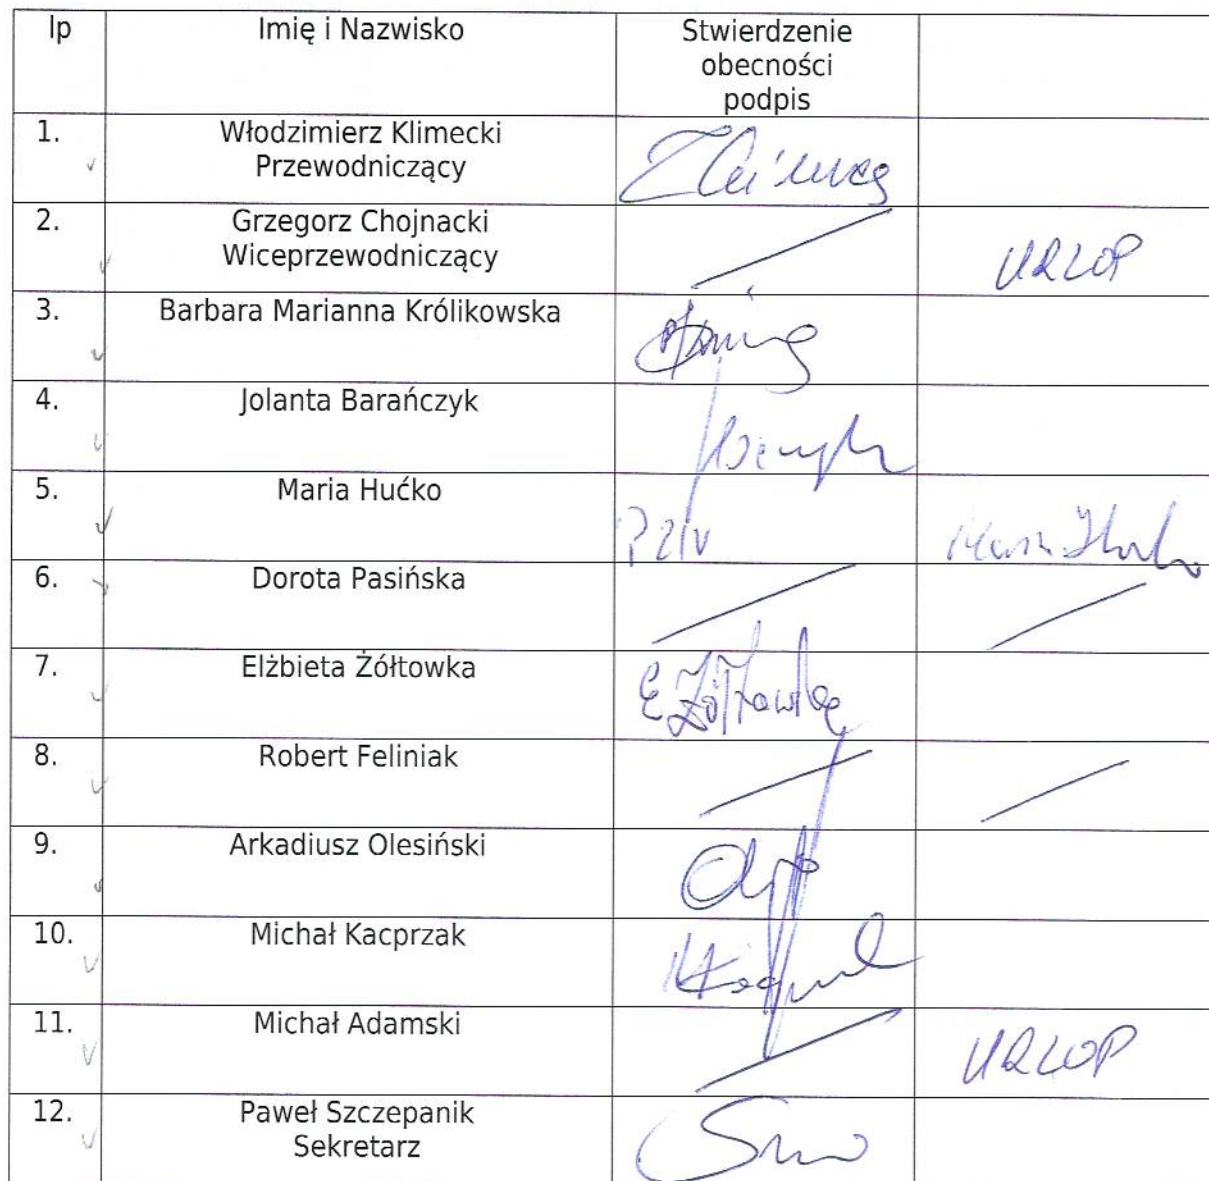 lp Imię i Nazwisko Stwierdzenie
obecności
podpis
1. Włodzimierz Klimecki
Przewodniczący
2. Grzegorz Chojnacki
Wiceprzewodniczący
URLOP
3. Barbara Marianna Królikowska
4. Jolanta Barańczyk
5. Maria Hućko
6. Dorota Pasińska
7. Elżbieta Żółtowka
E Żółtowka
8. Robert Feliniak
9. Arkadiusz Olesiński
10. Michał Kacprzak
11. Michał Adamski
URLOP
12. Paweł Szczepanik
Sekretarz